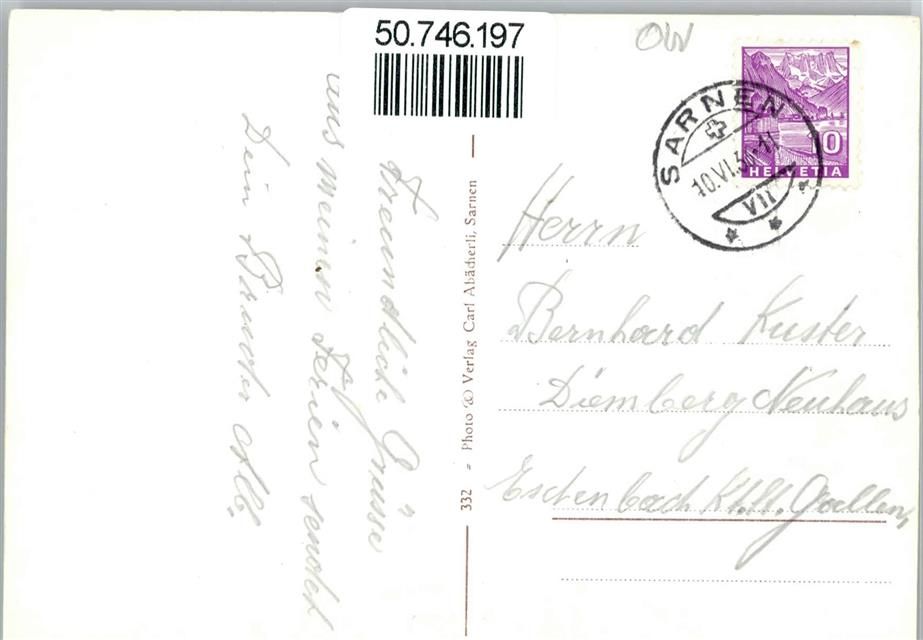 50.746.197
OW
SARNEN
10.VI.3
-11
VII
10
HELVETIA
Freundliche Grüsse
aus meinen Ferien sendet
Dein Bruder Alb.
332 - Photo & Verlag Carl Abächerli, Sarnen
Herrn
Bernhard Kuster
Diemberg Neuhaus
Eschenbach Kt. St. Gallen